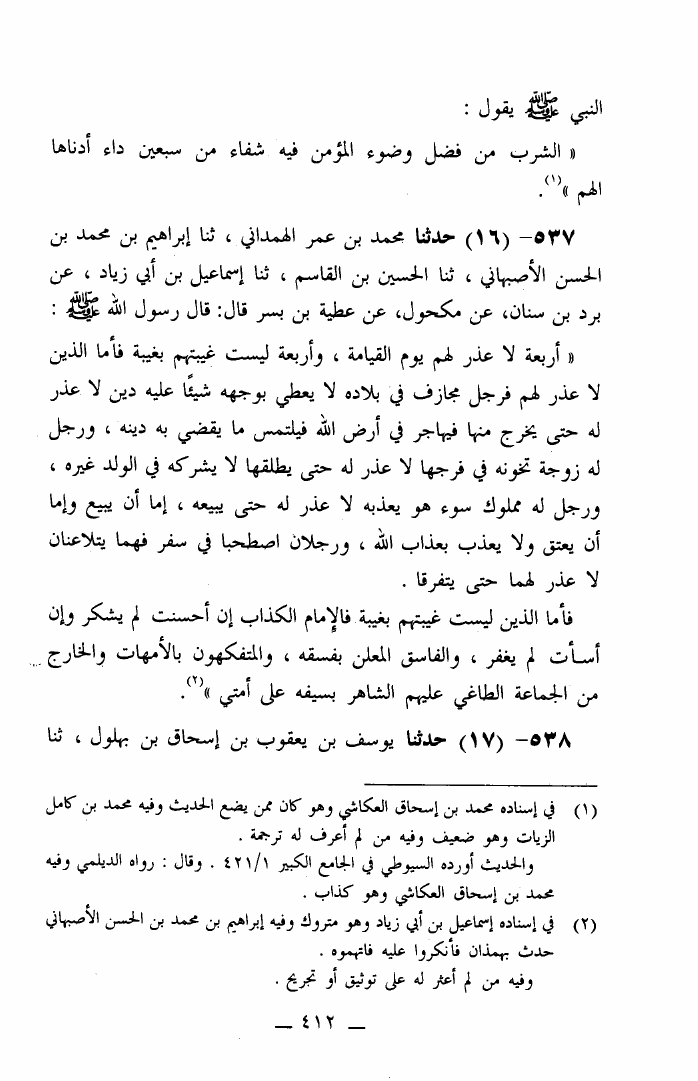 النبي ﷺ يقول :
« الشرب من فضل وضوء المؤمن فيه شفاء من سبعين داء أدناها
الهم »(١).
٥٣٧- (١٦) حدثنا محمد بن عمر الهمداني ، ثنا إبراهيم بن محمد بن
الحسن الأصبهاني ، ثنا الحسين بن القاسم ، ثنا إسماعيل بن أبي زياد ، عن
برد بن سنان، عن مكحول، عن عطية بن بسر قال: قال رسول الله ﷺ :
« أربعة لا عذر لهم يوم القيامة ، وأربعة ليست غيبتهم بغيبة فأما الذين
لا عذر لهم فرجل مجازف في بلاده لا يعطي بوجهه شيئًا عليه دين لا عذر
له حتى يخرج منها فيهاجر في أرض الله فيلتمس ما يقضي به دينه ، ورجل
له زوجة تخونه في فرجها لا عذر له حتى يطلقها لا يشركه في الولد غيره ،
ورجل له مملوك سوء هو يعذبه لا عذر له حتى يبيعه ، إما أن يبيع وإما
أن يعتق ولا يعذب بعذاب الله ، ورجلان اصطحبا في سفر فهما يتلاعنان
لا عذر لهما حتى يتفرقا .
فأما الذين ليست غيبتهم بغيبة فالإمام الكذاب إن أحسنت لم يشكر وإن
أسأت لم يغفر ، والفاسق المعلن بفسقه ، والمتفكهون بالأمهات والخارج
من الجماعة الطاغي عليهم الشاهر بسيفه على أمتي »(٢).
٥٣٨- (١٧) حدثنا يوسف بن يعقوب بن إسحاق بن بهلول ، ثنا
(١) في إسناده محمد بن إسحاق العكاشي وهو كان ممن يضع الحديث وفيه محمد بن كامل
الزيات وهو ضعيف وفيه من لم أعرف له ترجمة .
والحديث أورده السيوطي في الجامع الكبير ٤٢١/١ . وقال : رواه الديلمي وفيه
محمد بن إسحاق العكاشي وهو كذاب .
(٢) في إسناده إسماعيل بن أبي زياد وهو متروك وفيه إبراهيم بن محمد بن الحسن الأصبهاني
حدث بهمذان فأنكروا عليه فاتهموه .
وفيه من لم أعثر له على توثيق أو تجريح .
— ٤١٢ —